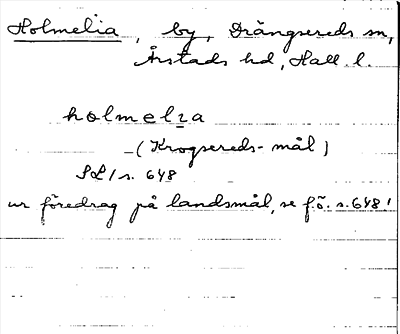 Holmelia, by, Drängsereds sn,
Årstads hd, Hall. l.
holmelıa
(Krogsereds-mål)
SL 1 s. 648
ur föredrag på landsmål, se f.ö. s. 648!